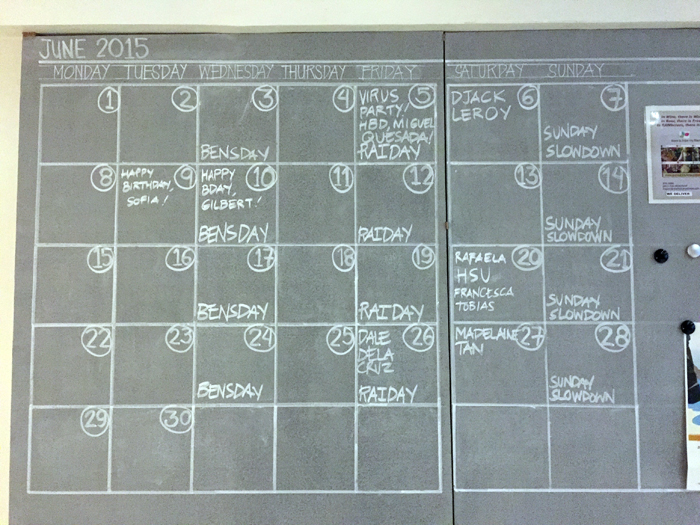 JUNE 2015
MONDAY TUESDAY WEDNESDAY THURSDAY FRIDAY SATURDAY SUNDAY
1
2
3
BENSDAY
4
5
VIRUS
PARTY/
HBD, MIGUEL
QUESADA/
RAIDAY
6
DJACK
LEROY
7
SUNDAY
SLOWDOWN
8
9
HAPPY
BIRTHDAY,
SOFIA!
10
HAPPY
BDAY,
GILBERT!
BENSDAY
11
12
RAIDAY
13
14
SUNDAY
SLOWDOWN
15
16
17
BENSDAY
18
19
RAIDAY
20
RAFAELA
HSU
FRANCESCA
TOBIAS
21
SUNDAY
SLOWDOWN
22
23
24
BENSDAY
25
26
DALE
DELA
CRUZ
RAIDAY
27
MADELAINE
TAN
28
SUNDAY
SLOWDOWN
29
30
WE DELIVER